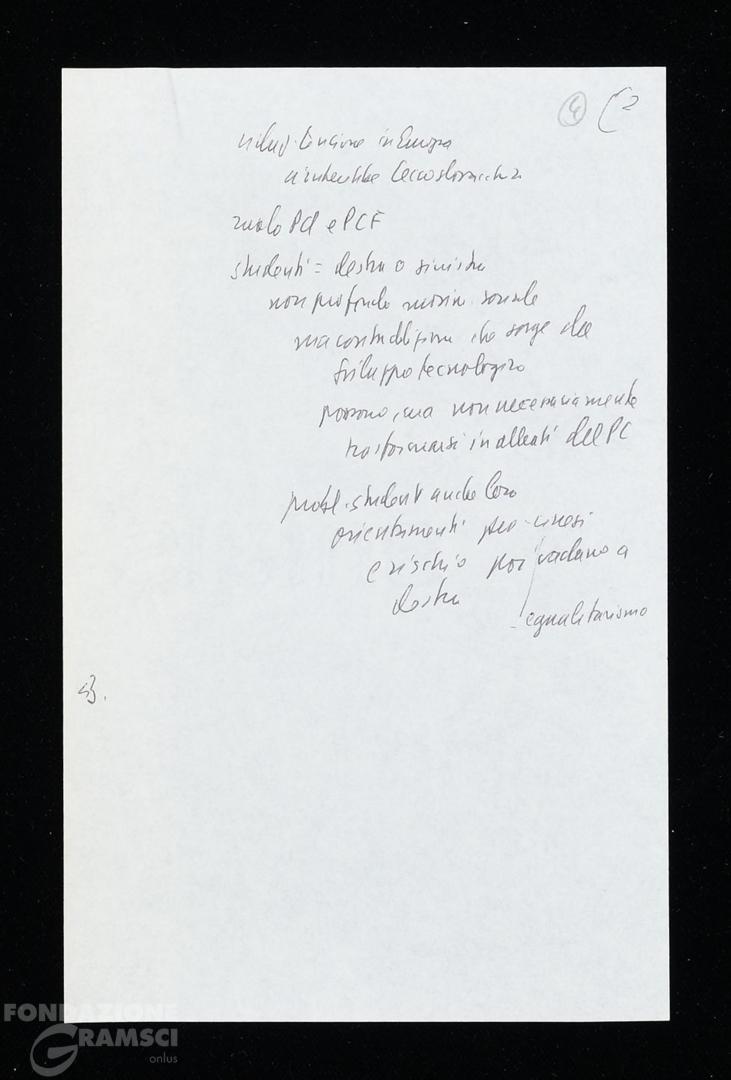 4 2
tensione in Europa
Cecoslovacchia
ruolo PCI e PCF
studenti = destra o sinistra
non profonda sociale
ma contraddizione che sorge da
sviluppo tecnologico
possono, ma non necessariamente
trasformarsi in alleati del PC
probl. studenti anche loro
orientamenti pro-cinesi
e rischio poi vadano a
destra
- egualitarismo
FONDAZIONE
GRAMSCI
onlus